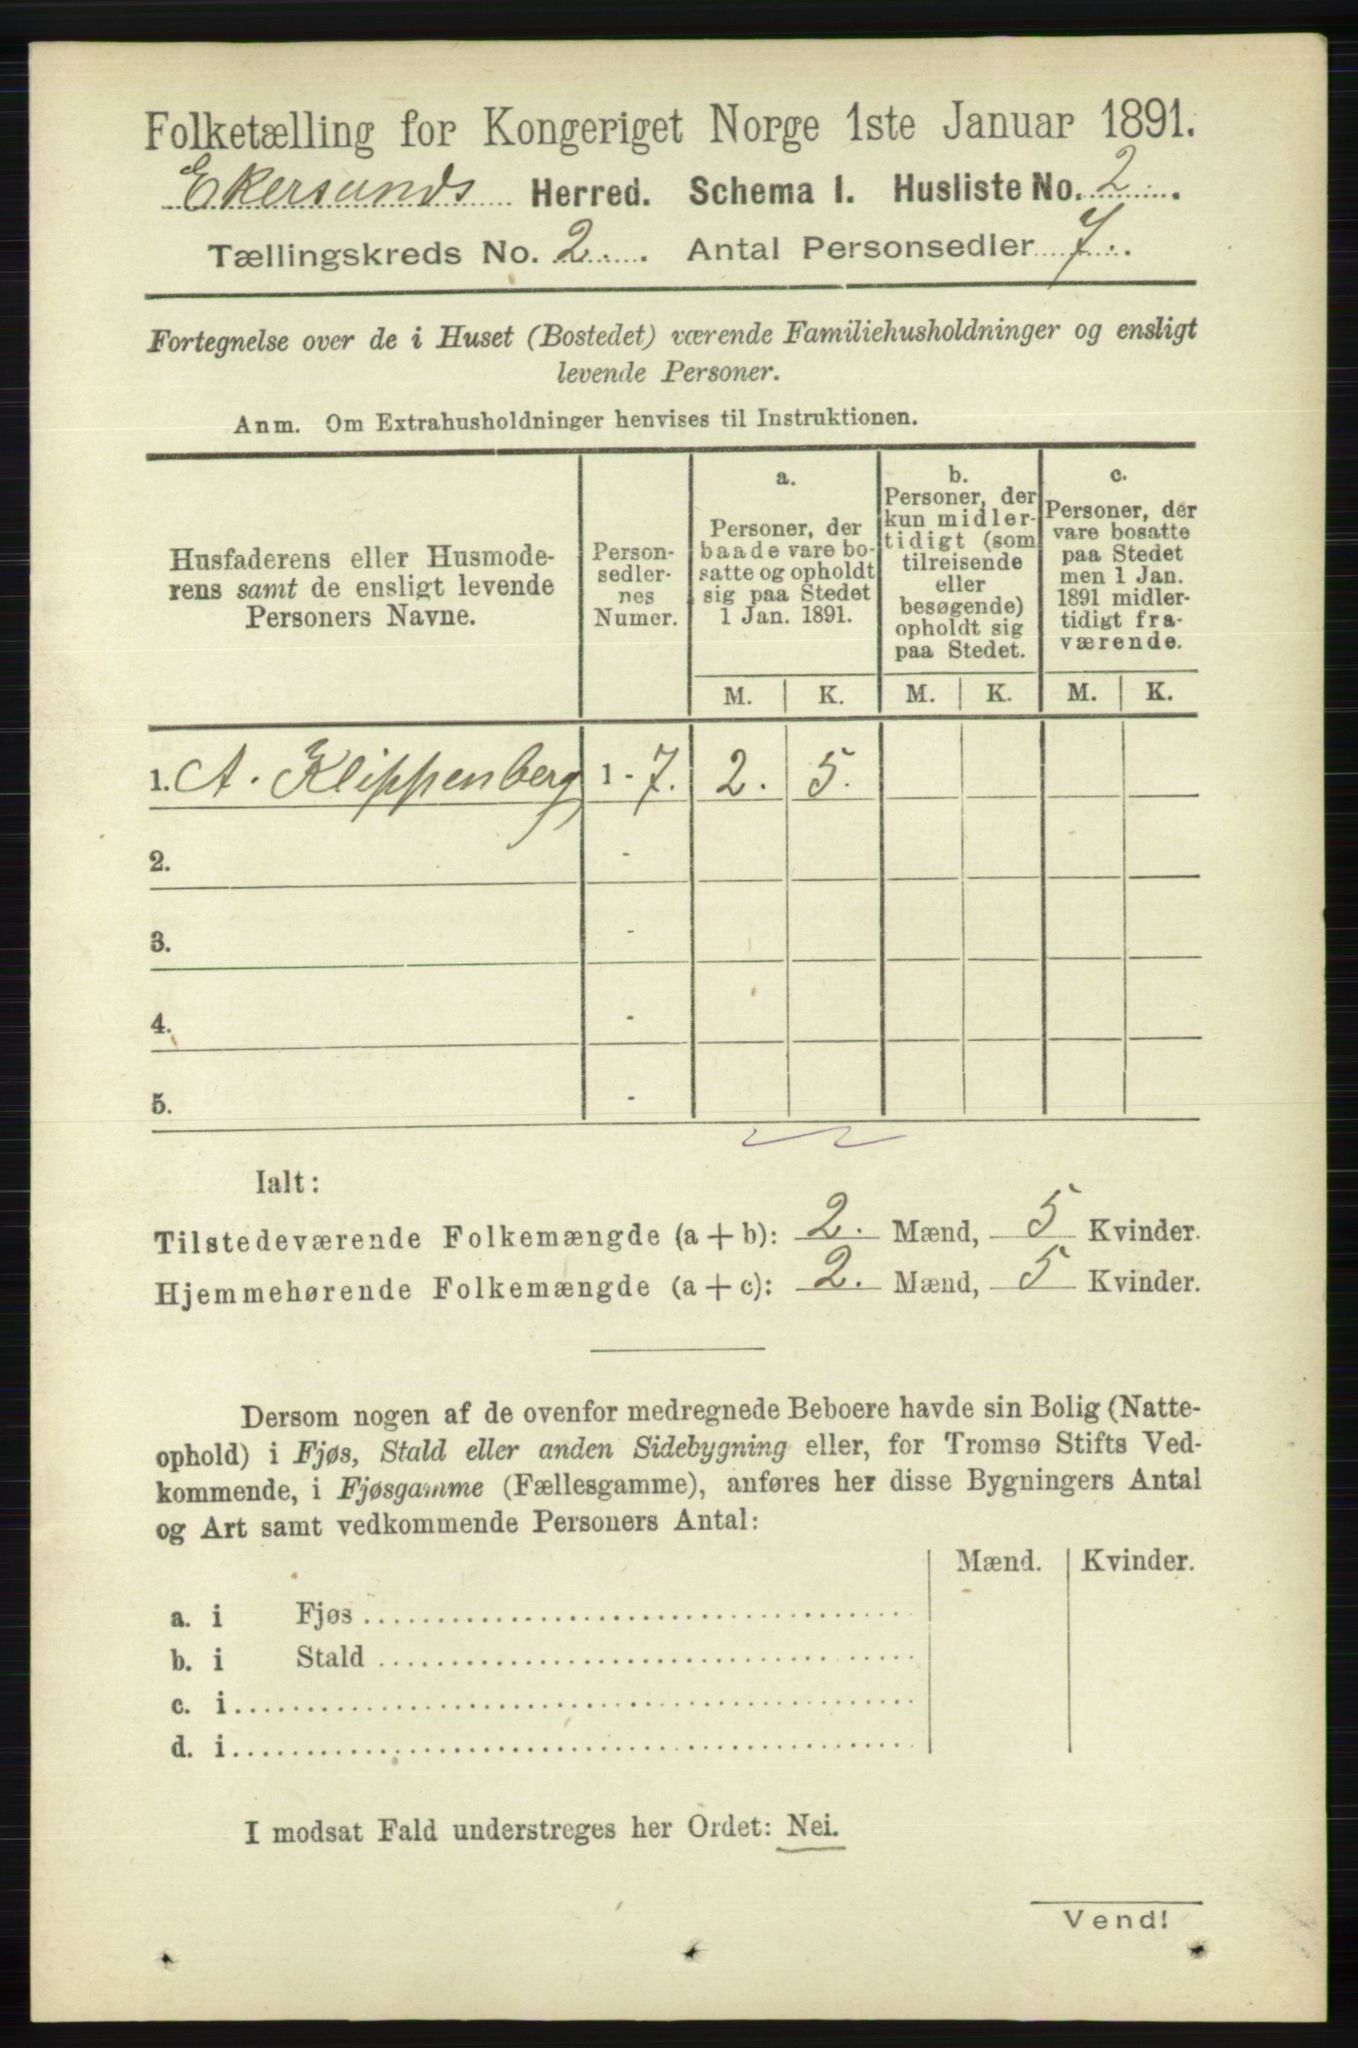 Folketælling for Kongeriget Norge 1ste Januar 1891.
Ekersunds Herred. Schema I. Husliste No. 2.
Tællingskreds No. 2. Antal Personsedler 7.
Fortegnelse over de i Huset (Bostedet) værende Familiehusholdninger og ensligt
levende Personer.
Anm. Om Extrahusholdninger henvises til Instruktionen.
Husfaderens eller Husmode-
rens samt de ensligt levende
Personers Navne.
Person-
sedler-
nes
Numer.
a.
Personer, der
baade vare bo-
satte og opholdt
sig paa Stedet
1 Jan. 1891.
b.
Personer, der
kun midler-
tidigt (som
tilreisende
eller
besøgende)
opholdt sig
paa Stedet.
c.
Personer, der
vare bosatte
paa Stedet
men 1 Jan.
1891 midler-
tidigt fra-
værende.
M. K. M. K. M. K.
1. A. Klippenberg 1 - 7. 2. 5.
2. -
3. -
4. -
5. -
Ialt:
Tilstedeværende Folkemængde (a + b): 2. Mænd, 5 Kvinder.
Hjemmehørende Folkemængde (a + c): 2. Mænd, 5 Kvinder.
Dersom nogen af de ovenfor medregnede Beboere havde sin Bolig (Natte-
ophold) i Fjøs, Stald eller anden Sidebygning eller, for Tromsø Stifts Ved-
kommende, i Fjøsgamme (Fællesgamme), anføres her disse Bygningers Antal
og Art samt vedkommende Personers Antal:
Mænd. Kvinder.
a. i Fjøs
b. i Stald
c. i
d. i
I modsat Fald understreges her Ordet: Nei.
Vend!